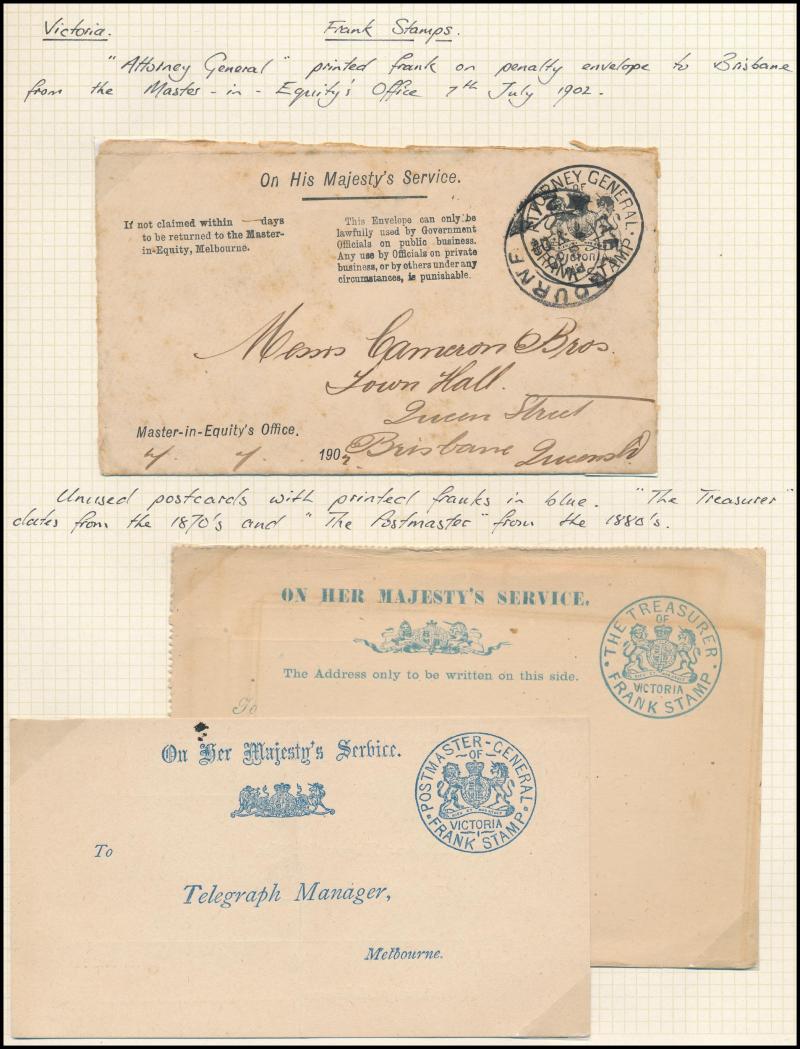 Victoria. Frank Stamps.
"Attorney General" printed frank on penalty envelope to Brisbane
from the Master-in-Equity's Office 7th July 1902.
On His Majesty's Service.
If not claimed within days
to be returned to the Master-
in-Equity, Melbourne.
This Envelope can only be
lawfully used by Government
Officials on public business.
Any use by Officials on private
business, or by others under any
circumstances, is punishable.
ATTORNEY GENERAL
OF
VICTORIA
FRANK STAMP
MELBOURNE
Messrs Cameron Bros.
Town Hall.
Queen Street
Brisbane Queensld
Master-in-Equity's Office.
7. 7. 1902
Unused postcards with printed franks in blue. "The Treasurer"
dates from the 1870's and "The Postmaster" from the 1880's.
ON HER MAJESTY'S SERVICE.
The Address only to be written on this side.
To
· THE TREASURER ·
OF
VICTORIA
FRANK STAMP
On Her Majesty's Service.
POSTMASTER-GENERAL
-OF-
VICTORIA
FRANK STAMP
To
Telegraph Manager,
Melbourne.